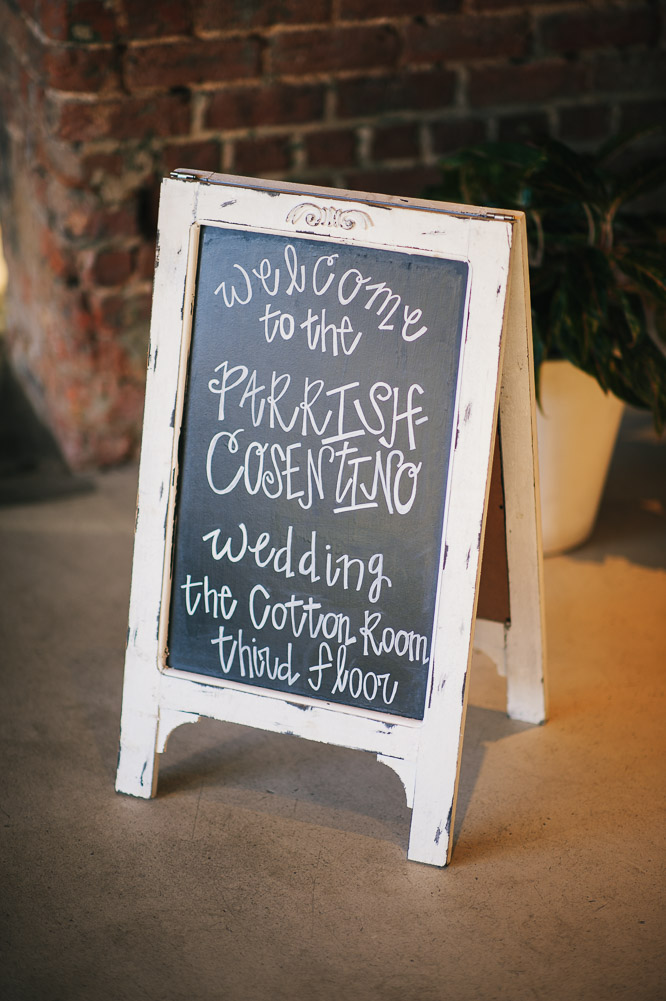 welcome
to the
PARRISH-
COSENTINO
wedding
the Cotton Room
third floor